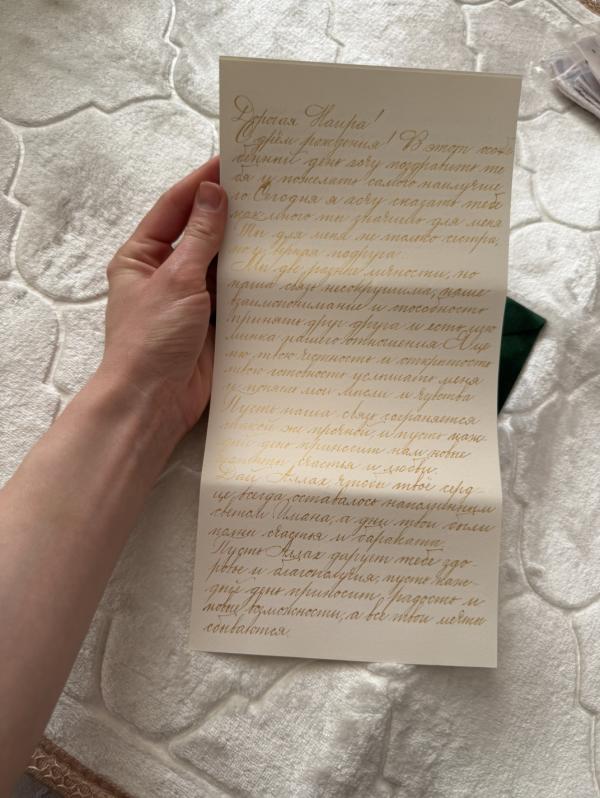 Дорогая Наира!
С днём рождения! В этот особ-
бенный день хочу поздравить те-
бя и пожелать самого наилучше-
го. Сегодня я хочу сказать тебе
как много ты значишь для меня
Ты для меня не только сестра,
но и верная подруга.
Мы две разные личности, но
наша связь несокрушима, наше
взаимопонимание и способность
принять друг друга и есть изю-
минка нашего отношения Я це-
ню, твою честность и открытость
твою готовность услышать меня
и понять мои мысли и чувства
Пусть наша связь сохраняется
такой же прочной, и пусть каж-
дый день приносит нам новые
моменты счастья и любви.
Дай Аллах, чтобы твоё серд-
це всегда оставалось наполненным
светом Имана, а дни твои были
полны счастья и бараката.
Пусть Аллах дарует тебе здо-
ровье и благополучия, пусть каж-
дый день приносит, радость и
новые возможности, а все твои мечты
сбываются.